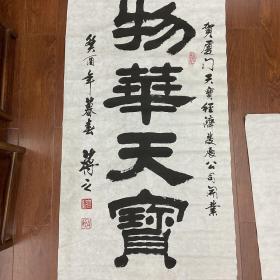 賀厦门天寶經濟发展公司開業
物華天寶
癸酉年暮春